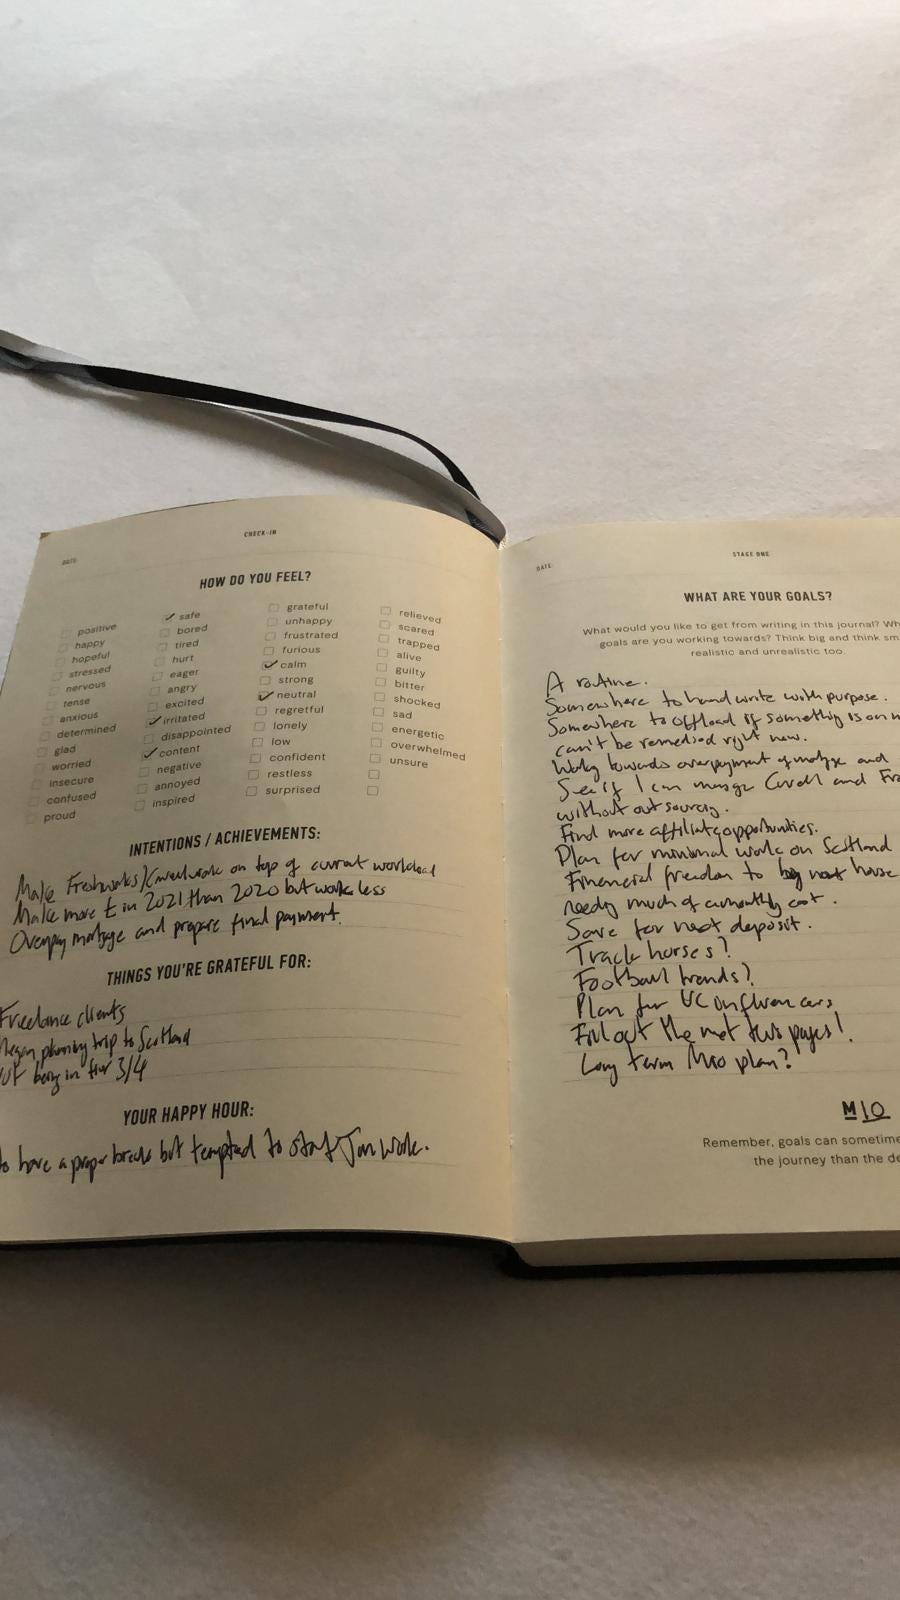 CHECK-IN
DATE:
HOW DO YOU FEEL?
positive
happy
hopeful
stressed
nervous
tense
anxious
determined
glad
worried
insecure
confused
proud
safe
bored
tired
hurt
eager
angry
excited
irritated
disappointed
content
negative
annoyed
inspired
grateful
unhappy
frustrated
furious
calm
strong
neutral
regretful
lonely
low
confident
restless
surprised
relieved
scared
trapped
alive
guilty
bitter
shocked
sad
energetic
overwhelmed
unsure
INTENTIONS / ACHIEVEMENTS:
Make Freshworks/ work on top of current workload
Make more £ in 2021 than 2020 but work less
Overpay mortgage and prepare final payment.
THINGS YOU'RE GRATEFUL FOR:
Freelance clients
Megan planning trip to Scotland
not being in tier 3/4
YOUR HAPPY HOUR:
to have a proper break but tempted to start Jan work.
STAGE ONE
DATE:
WHAT ARE YOUR GOALS?
What would you like to get from writing in this journal?
goals are you working towards? Think big and think
realistic and unrealistic too.
A routine.
Somewhere to hand write with purpose.
Somewhere to offload if something is on
can't be remedied right now.
Work towards overpayment of mortgage and
See if I can manage and
without outsourcing.
Find more affiliate opportunities.
Plan for minimal work on Scotland
Financial freedom to house
needing much of a monthly cost.
Save for next deposit.
Track horses?
Football trends?
Plan for UC influencers
Fill out the next two pages!
Long term M10 plan?
M10
Remember, goals can
the journey than the